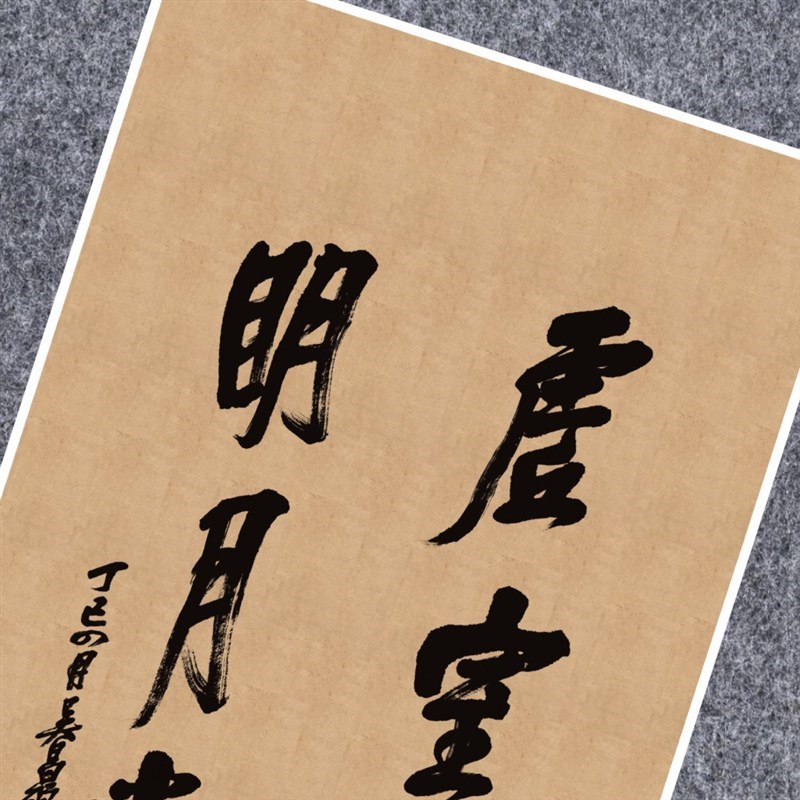 虚室
明月
丁巳四月吴昌